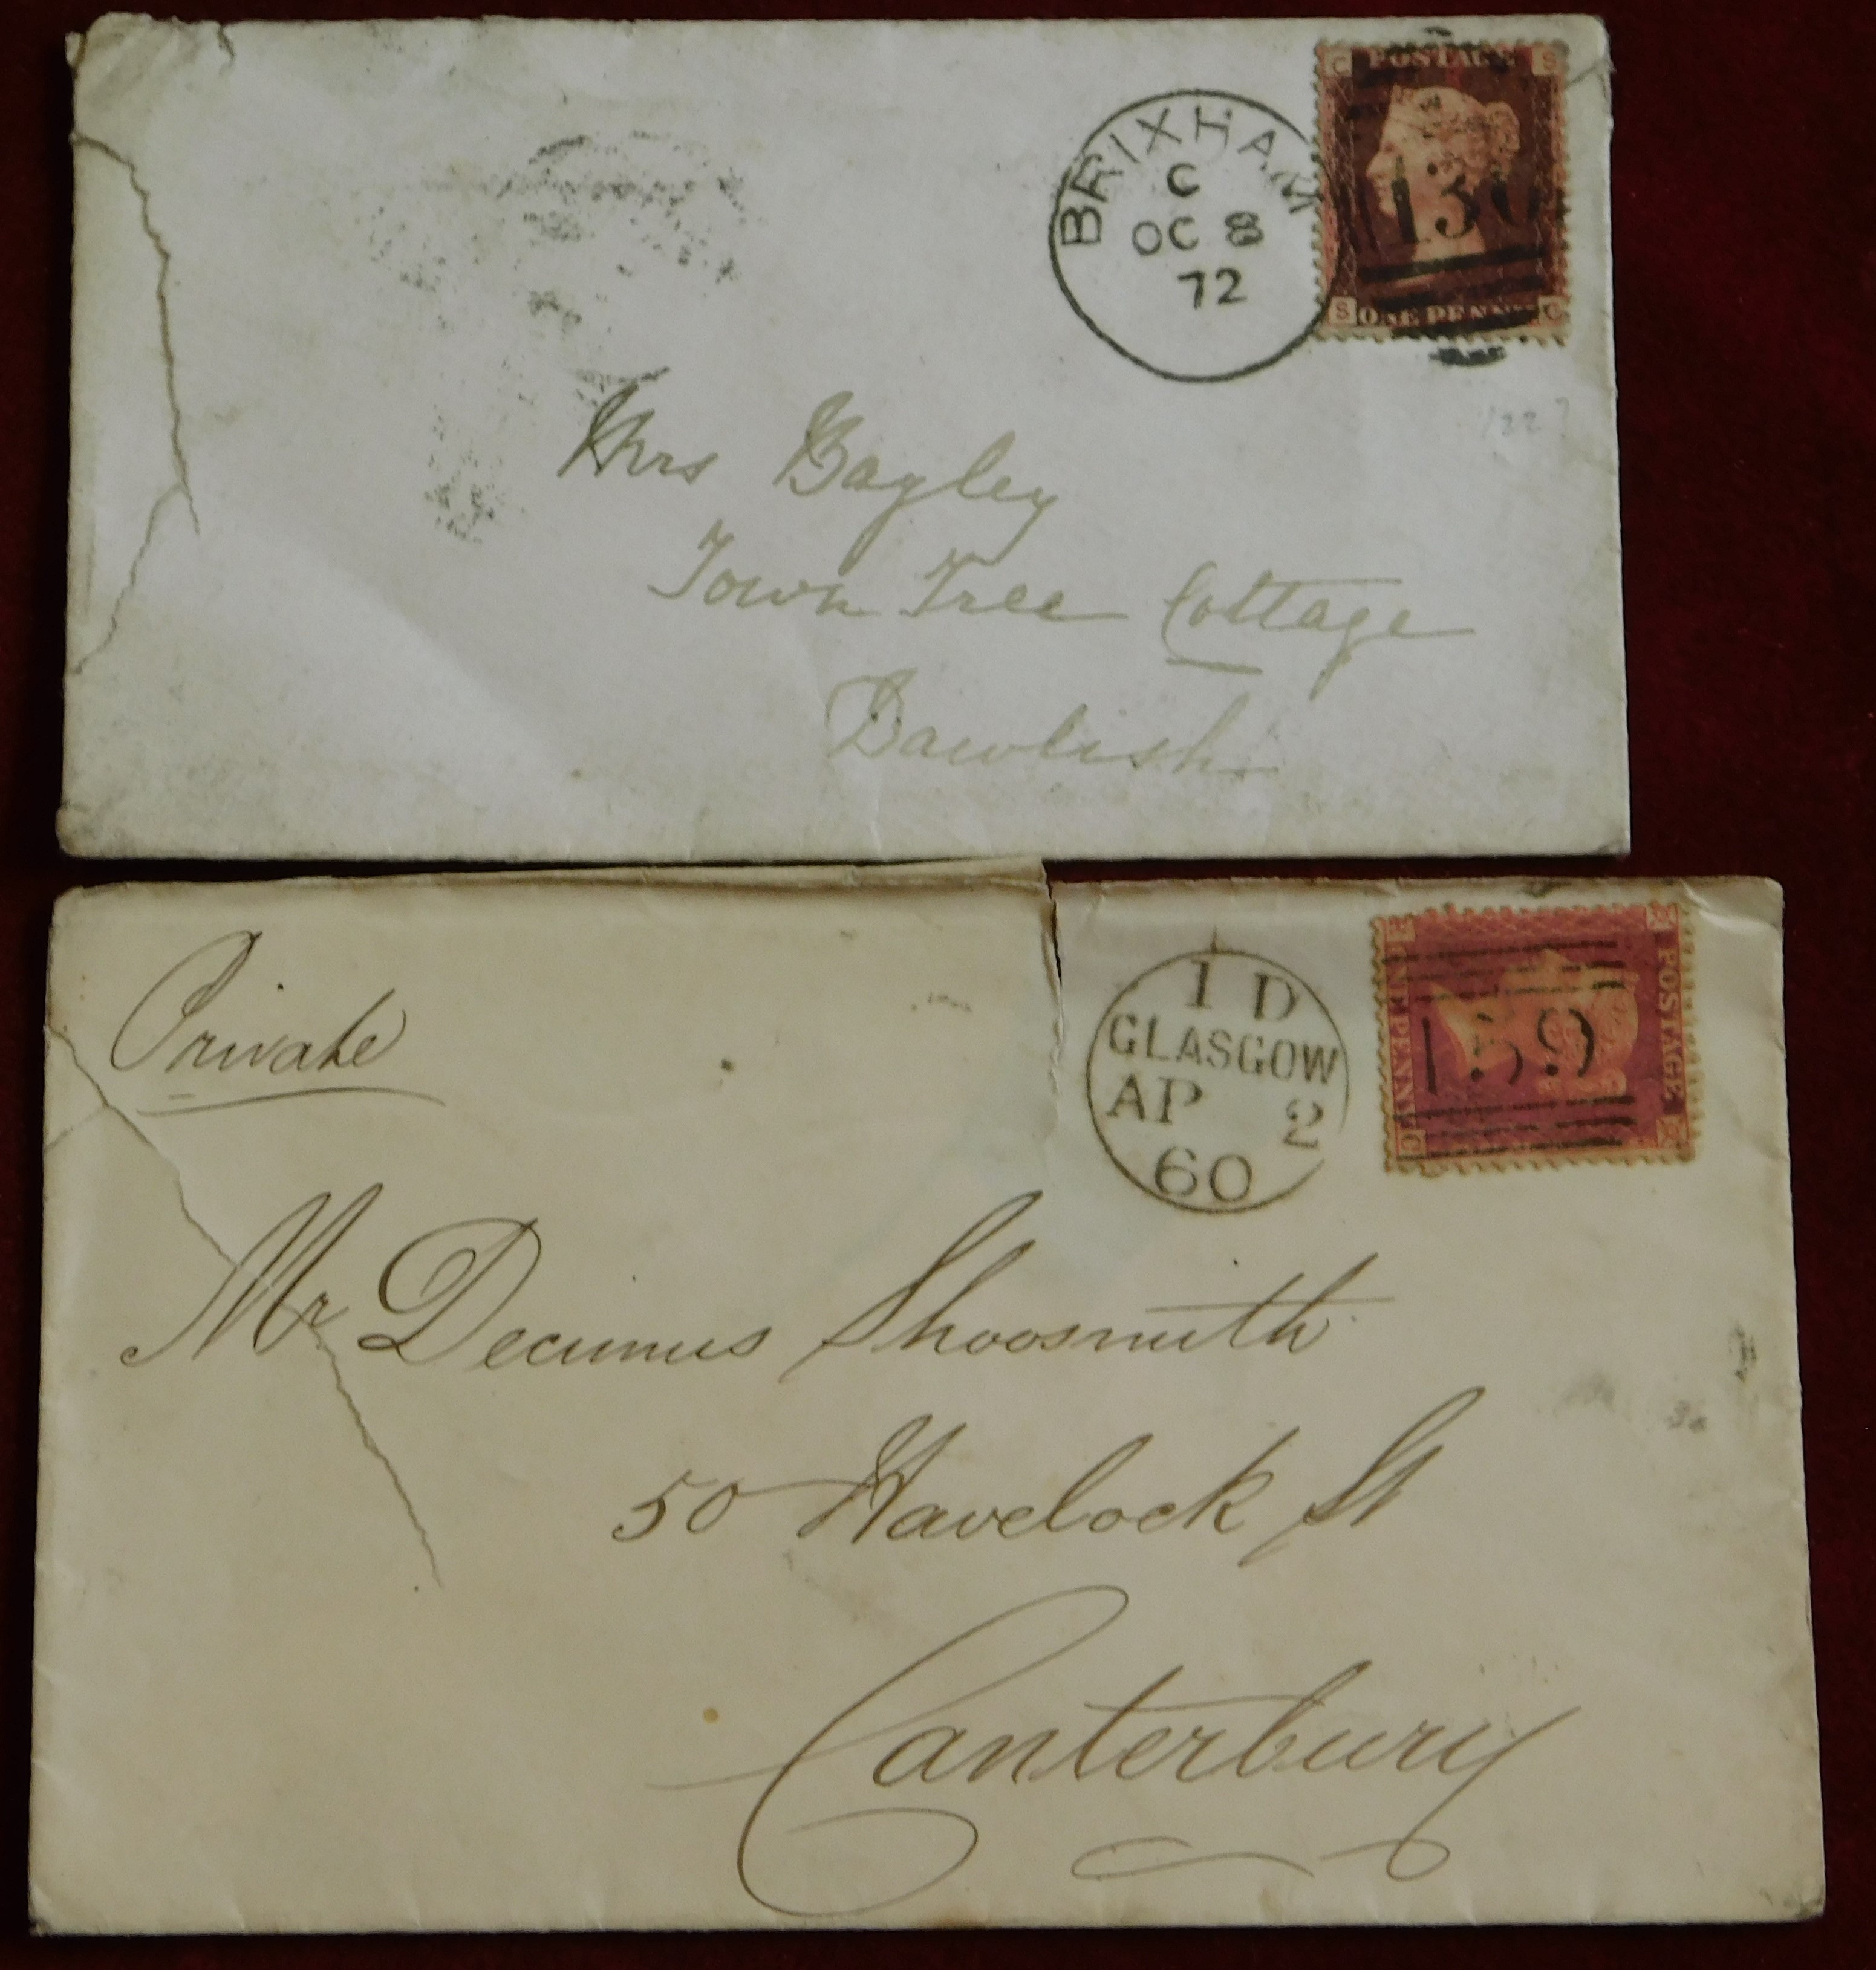 C POSTAGE S
BRIXHAM
C
OC 8
72
130
S ONE PENNY C
Mrs Bagley
Town Tree Cottage
Dawlish
Private
1 D
GLASGOW
AP 2
60
POSTAGE
159
ONE PENNY
Mr Decimus Shoosmith
50 Havelock St
Canterbury